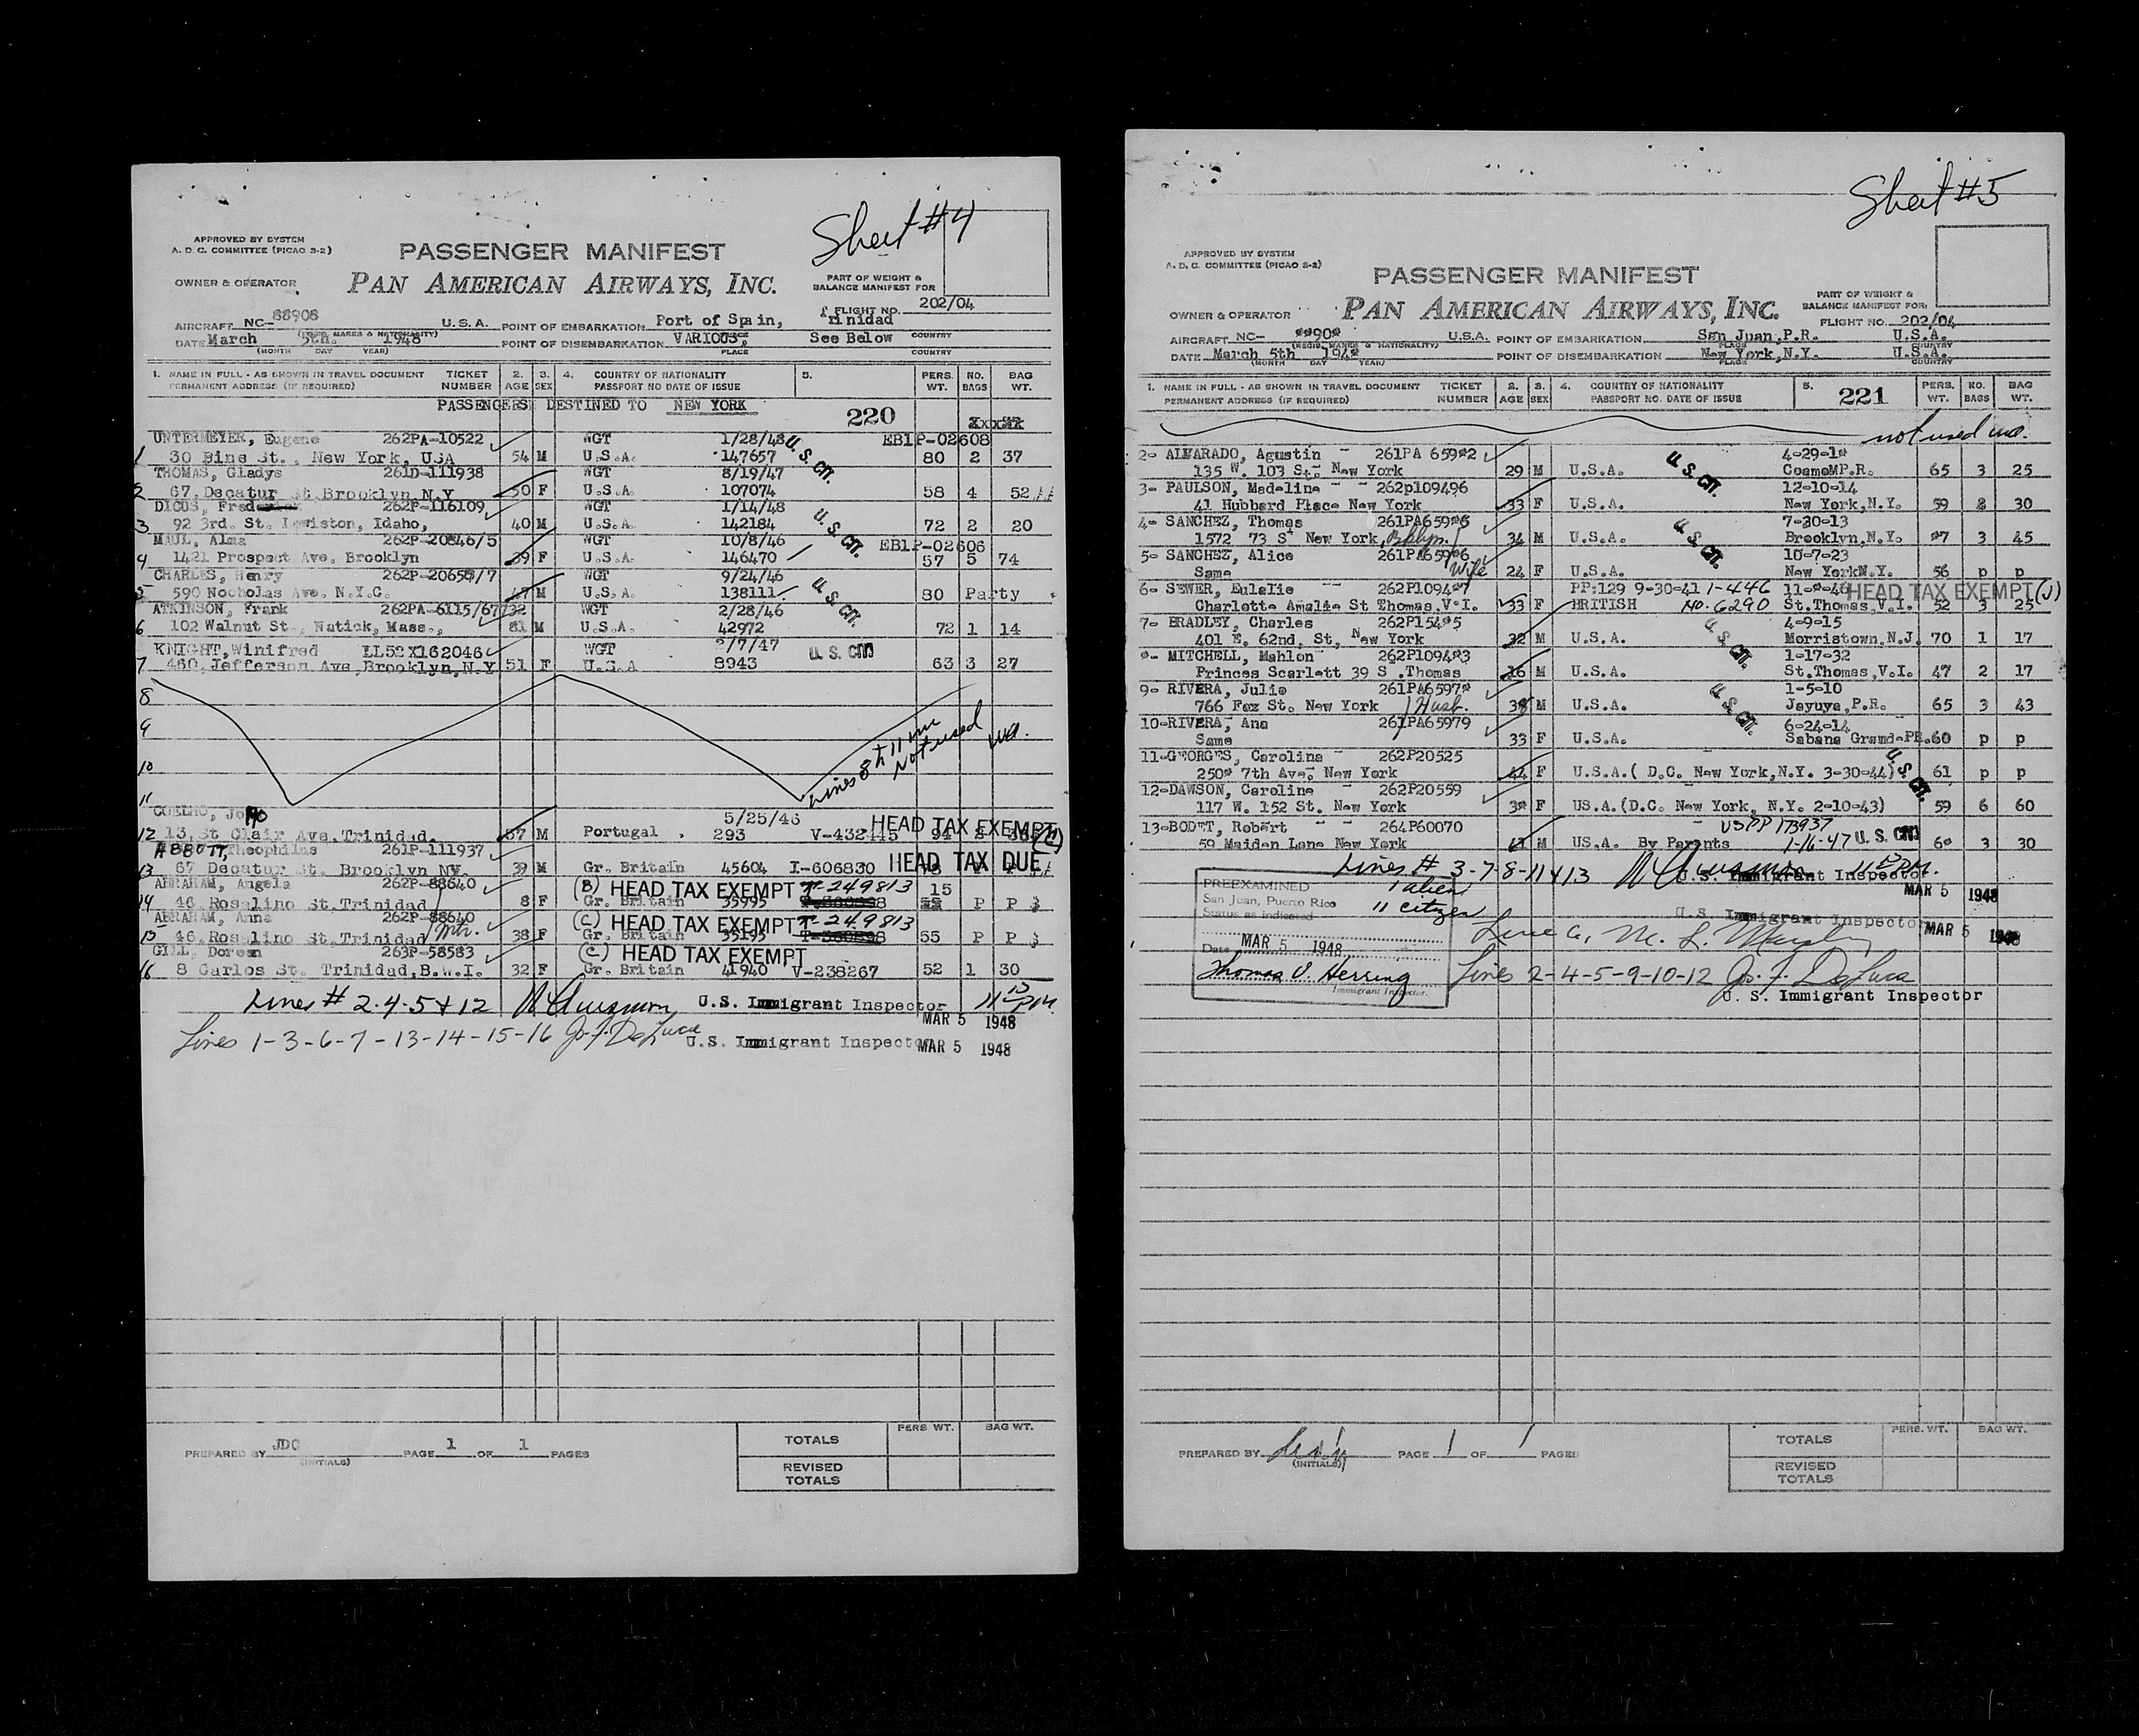 Sheet #4
APPROVED BY SYSTEM
A. D. C. COMMITTEE (PICAO S-2)
PASSENGER MANIFEST
OWNER & OPERATOR
PAN AMERICAN AIRWAYS, INC.
PART OF WEIGHT &
BALANCE MANIFEST FOR
FLIGHT NO. 202/04
AIRCRAFT NC-88908 U.S.A. POINT OF EMBARKATION Port of Spain, Trinidad
(REGIS. MARKS & NATIONALITY) PLACE COUNTRY
DATE March 5th. 1948 POINT OF DISEMBARKATION VARIOUS, See Below
(MONTH DAY YEAR) PLACE COUNTRY
1. NAME IN FULL - AS SHOWN IN TRAVEL DOCUMENT TICKET 2. 3. 4. COUNTRY OF NATIONALITY 5. PERS. NO. BAG
PERMANENT ADDRESS (IF REQUIRED) NUMBER AGE SEX PASSPORT NO DATE OF ISSUE WT. BAGS WT.
PASSENGERS DESTINED TO NEW YORK 220
UNTERMEYER, Eugene 262PA-10522 WGT 1/28/48 EB1P-02608
1 30 Pine St., New York, USA 54 M U.S.A. 147657 U. S. CIT. 80 2 37
THOMAS, Gladys 261D-111938 WGT 8/19/47
2 67 Decatur St Brooklyn N.Y 50 F U.S.A. 107074 58 4 52
DICUS, Fred 262P-116109 WGT 1/14/48
3 92 3rd. St. Lewiston, Idaho, 40 M U.S.A. 142184 U. S. CIT. 72 2 20
MAUL, Alma 262P-20846/5 WGT 10/8/46 EB1P-02606
4 1421 Prospect Ave. Brooklyn 39 F U.S.A. 146470 57 5 74
CHARLES, Henry 262P-20659/7 WGT 9/24/46
5 590 Nocholas Ave. N.Y.C. 47 M U.S.A. 138111 U. S. CIT. 80 Party
ATKINSON, Frank 262PA-6115/67732 WGT 2/28/46
6 102 Walnut St., Natick, Mass., 81 M U.S.A. 42972 72 1 14
KNIGHT, Winifred LL52X162046 WGT 2/7/47 U. S. CIT
7 460 Jefferson Ave, Brooklyn, N.Y 51 F U.S.A 8943 63 3 27
8
9
10
11
Lines 8 to 11 inc
Not used
COELHO, Joao
12 13, St Clair Ave. Trinidad. 57 M Portugal 5/25/46 293 V-432445 HEAD TAX EXEMPT (C) 94 2
ABBOTT, Theophilus 261P-111937
13 67 Decatur St. Brooklyn NY. 39 M Gr. Britain 45604 I-606830 HEAD TAX DUE
ABRAHAM, Angela 262P-88640 (B) HEAD TAX EXEMPT T-249813 15
14 46 Rosalino St.Trinidad 8 F Gr. Britain 35995 P P
ABRAHAM, Anna 262P-88640 (C) HEAD TAX EXEMPT T-249813
15 46 Rosalino St.Trinidad Mtr. 38 F Gr. Britain 35195 55 P P
GILL, Doreen 263P-58583 (C) HEAD TAX EXEMPT
16 8 Carlos St. Trinidad,B.W.I. 32 F Gr. Britain 41940 V-238267 52 1 30
Lines # 2-4-5+12 U.S. Immigrant Inspector 11 15 PM
MAR 5 1948
Lines 1-3-6-7-13-14-15-16 Jos. F. DeLuca U.S. Immigrant Inspector MAR 5 1948
PERS WT. BAG WT.
TOTALS
PREPARED BY JDC PAGE 1 OF 1 PAGES
(INITIALS)
REVISED
TOTALS
Sheet #5
APPROVED BY SYSTEM
A. D. C. COMMITTEE (PICAO S-2)
PASSENGER MANIFEST
OWNER & OPERATOR
PAN AMERICAN AIRWAYS, INC.
PART OF WEIGHT &
BALANCE MANIFEST FOR:
FLIGHT NO. 202/04
AIRCRAFT NC- **90* U.S.A. POINT OF EMBARKATION San Juan,P.R. U.S.A.
(REGIS. MARKS & NATIONALITY) PLACE COUNTRY
DATE March 5th 194* POINT OF DISEMBARKATION New York,N.Y. U.S.A.
(MONTH DAY YEAR) PLACE COUNTRY
1. NAME IN FULL - AS SHOWN IN TRAVEL DOCUMENT TICKET 2. 3. 4. COUNTRY OF NATIONALITY 5. 221 PERS. NO. BAG
PERMANENT ADDRESS (IF REQUIRED) NUMBER AGE SEX PASSPORT NO. DATE OF ISSUE WT. BAGS WT.
not used
2- ALVARADO, Agustin 261PA 659*2 4-29-1*
135 W. 103 St. New York 29 M U.S.A. U. S. CIT. CoamoMP.R. 65 3 25
3- PAULSON, Madeline 262p109496 12-10-14
41 Hubbard Place New York 33 F U.S.A. New York,N.Y. 59 2 30
4- SANCHEZ, Thomas 261PA659*6 7-30-13
1572 73 St New York, Bklyn. 34 M U.S.A. U. S. CIT. Brooklyn,N.Y. *7 3 45
5- SANCHEZ, Alice 261PA659*6 10-7-23
Same Wife 24 F U.S.A. New YorkN.Y. 56 p p
6- SEWER, Eulalie 262P1094*7 PP:129 9-30-41 1-446 11-*-46 HEAD TAX EXEMPT (J)
Charlotte Amalie St Thomas,V.I. 33 F BRITISH NO. 6290 St.Thomas,V.I. 52 3 25
7- BRADLEY, Charles 262P154*5 4-9-15
401 E. 62nd, St, New York 32 M U.S.A. U. S. CIT. Morristown,N.J. 70 1 17
*- MITCHELL, Mahlon 262P1094*3 1-17-32
Princes Scarlett 39 S .Thomas 16 M U.S.A. St.Thomas,V.I. 47 2 17
9- RIVERA, Julio 261PA6597* 1-5-10
766 Fox St. New York Husb. 38 M U.S.A. U. S. CIT. Jayuya,P.R. 65 3 43
10-RIVERA, Ana 261PA65979 6-24-14
Same 33 F U.S.A. Sabana Grand-PR. 60 p p
11-GEORGES, Carolina 262P20525
250* 7th Ave. New York 44 F U.S.A.( D.C. New York,N.Y. 3-30-44) U. S. CIT. 61 p p
12-DAWSON, Caroline 262P20559
117 W. 152 St. New York 3* F US.A.(D.C. New York, N.Y. 2-10-43) 59 6 60
13-BODET, Robert 264P60070 USPP 173937
59 Maiden Lane New York M US.A. By Parents 1-16-47 U. S. CIT 6* 3 30
Lines # 3-7-8-11+13 U.S. Immigrant Inspector 11 15 PM.
PREEXAMINED 1 alien MAR 5 1948
San Juan, Puerto Rico 11 citizen
Status as indicated
U.S. Immigrant Inspector MAR 5 1948
Line 6, M. L. Murphy
Date MAR 5 1948
Thomas V. Herring
Immigrant Inspector.
Lines 2-4-5-9-10-12 Jos. F. DeLuca
U. S. Immigrant Inspector
PERS. WT. BAG WT.
TOTALS
PREPARED BY PAGE 1 OF 1 PAGES
(INITIALS)
REVISED
TOTALS